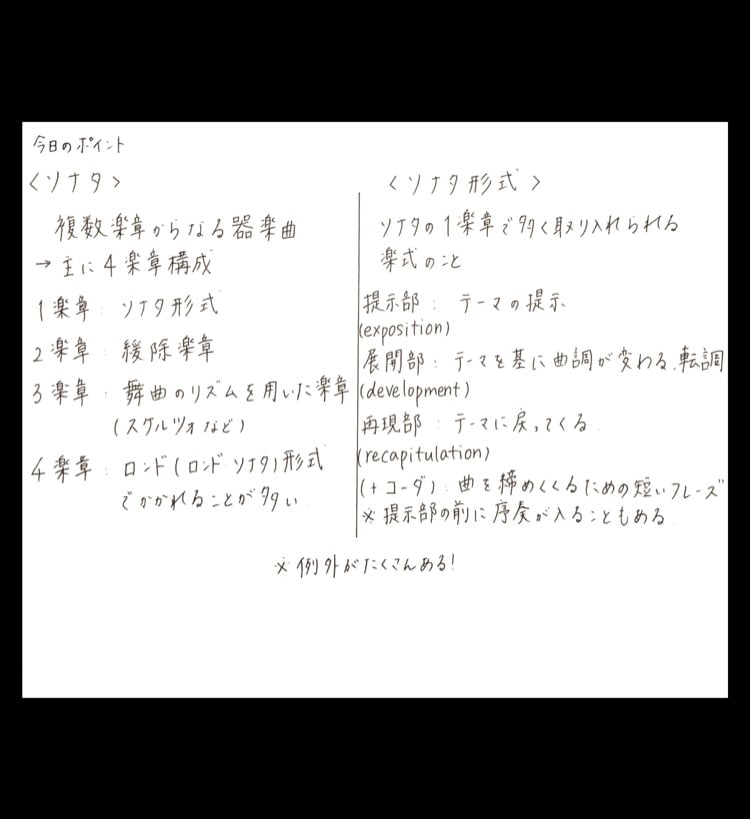 今日のポイント
〈ソナタ〉
複数楽章からなる器楽曲
→ 主に4楽章構成
1楽章：ソナタ形式
2楽章：緩除楽章
3楽章：舞曲のリズムを用いた楽章
(スケルツォなど)
4楽章：ロンド(ロンドソナタ)形式
でかかれることが多い
〈ソナタ形式〉
ソナタの1楽章で多く取り入れられる
楽式のこと
提示部：テーマの提示
(exposition)
展開部：テーマを基に曲調が変わる、転調
(development)
再現部：テーマに戻ってくる
(recapitulation)
(+コーダ)：曲を締めくくるための短いフレーズ
※提示部の前に序奏が入ることもある
※例外がたくさんある！